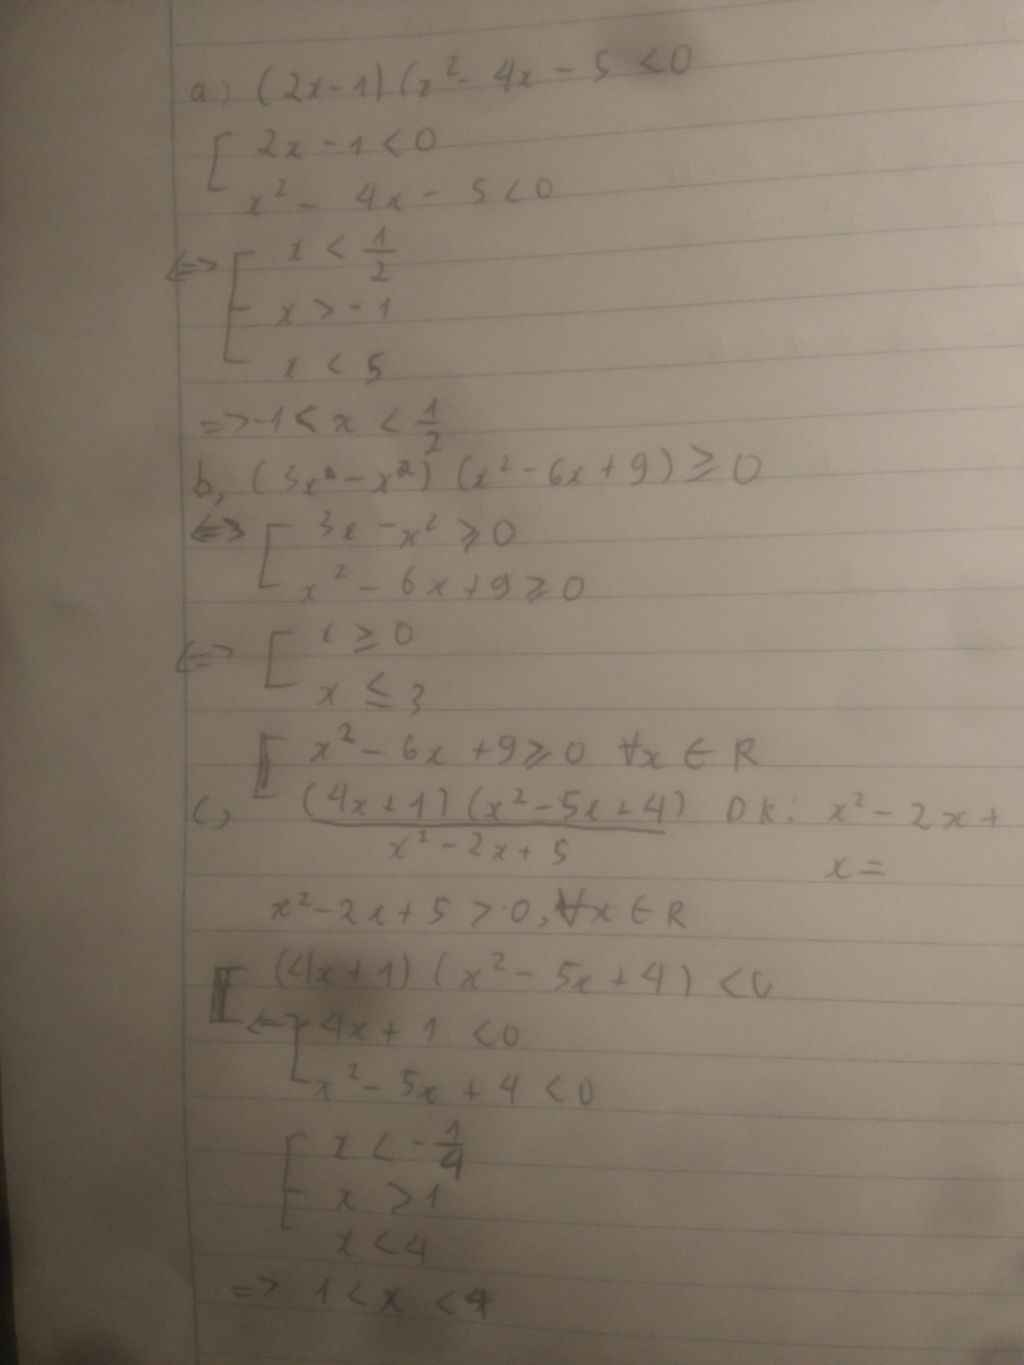 a) (2x-1)(x² - 4x - 5 < 0
[ 2x - 1 < 0
x² - 4x - 5 < 0
<=> [ x < 1/2
x > -1
x < 5
=> -1 < x < 1/2
b, (3x - x²) (x² - 6x + 9) ≥ 0
<=> [ 3x - x² ≥ 0
x² - 6x + 9 ≥ 0
<=> [ x ≥ 0
x ≤ 3
[ x² - 6x + 9 ≥ 0 ∀x ∈ R
c, (4x + 1) (x² - 5x + 4) DK: x² - 2x +
x² - 2x + 5
x =
x² - 2x + 5 > 0, ∀x ∈ R
[ (4x + 1) (x² - 5x + 4) < 0
<=> [ 4x + 1 < 0
x² - 5x + 4 < 0
[ x < -1/4
x > 1
x < 4
=> 1 < x < 4